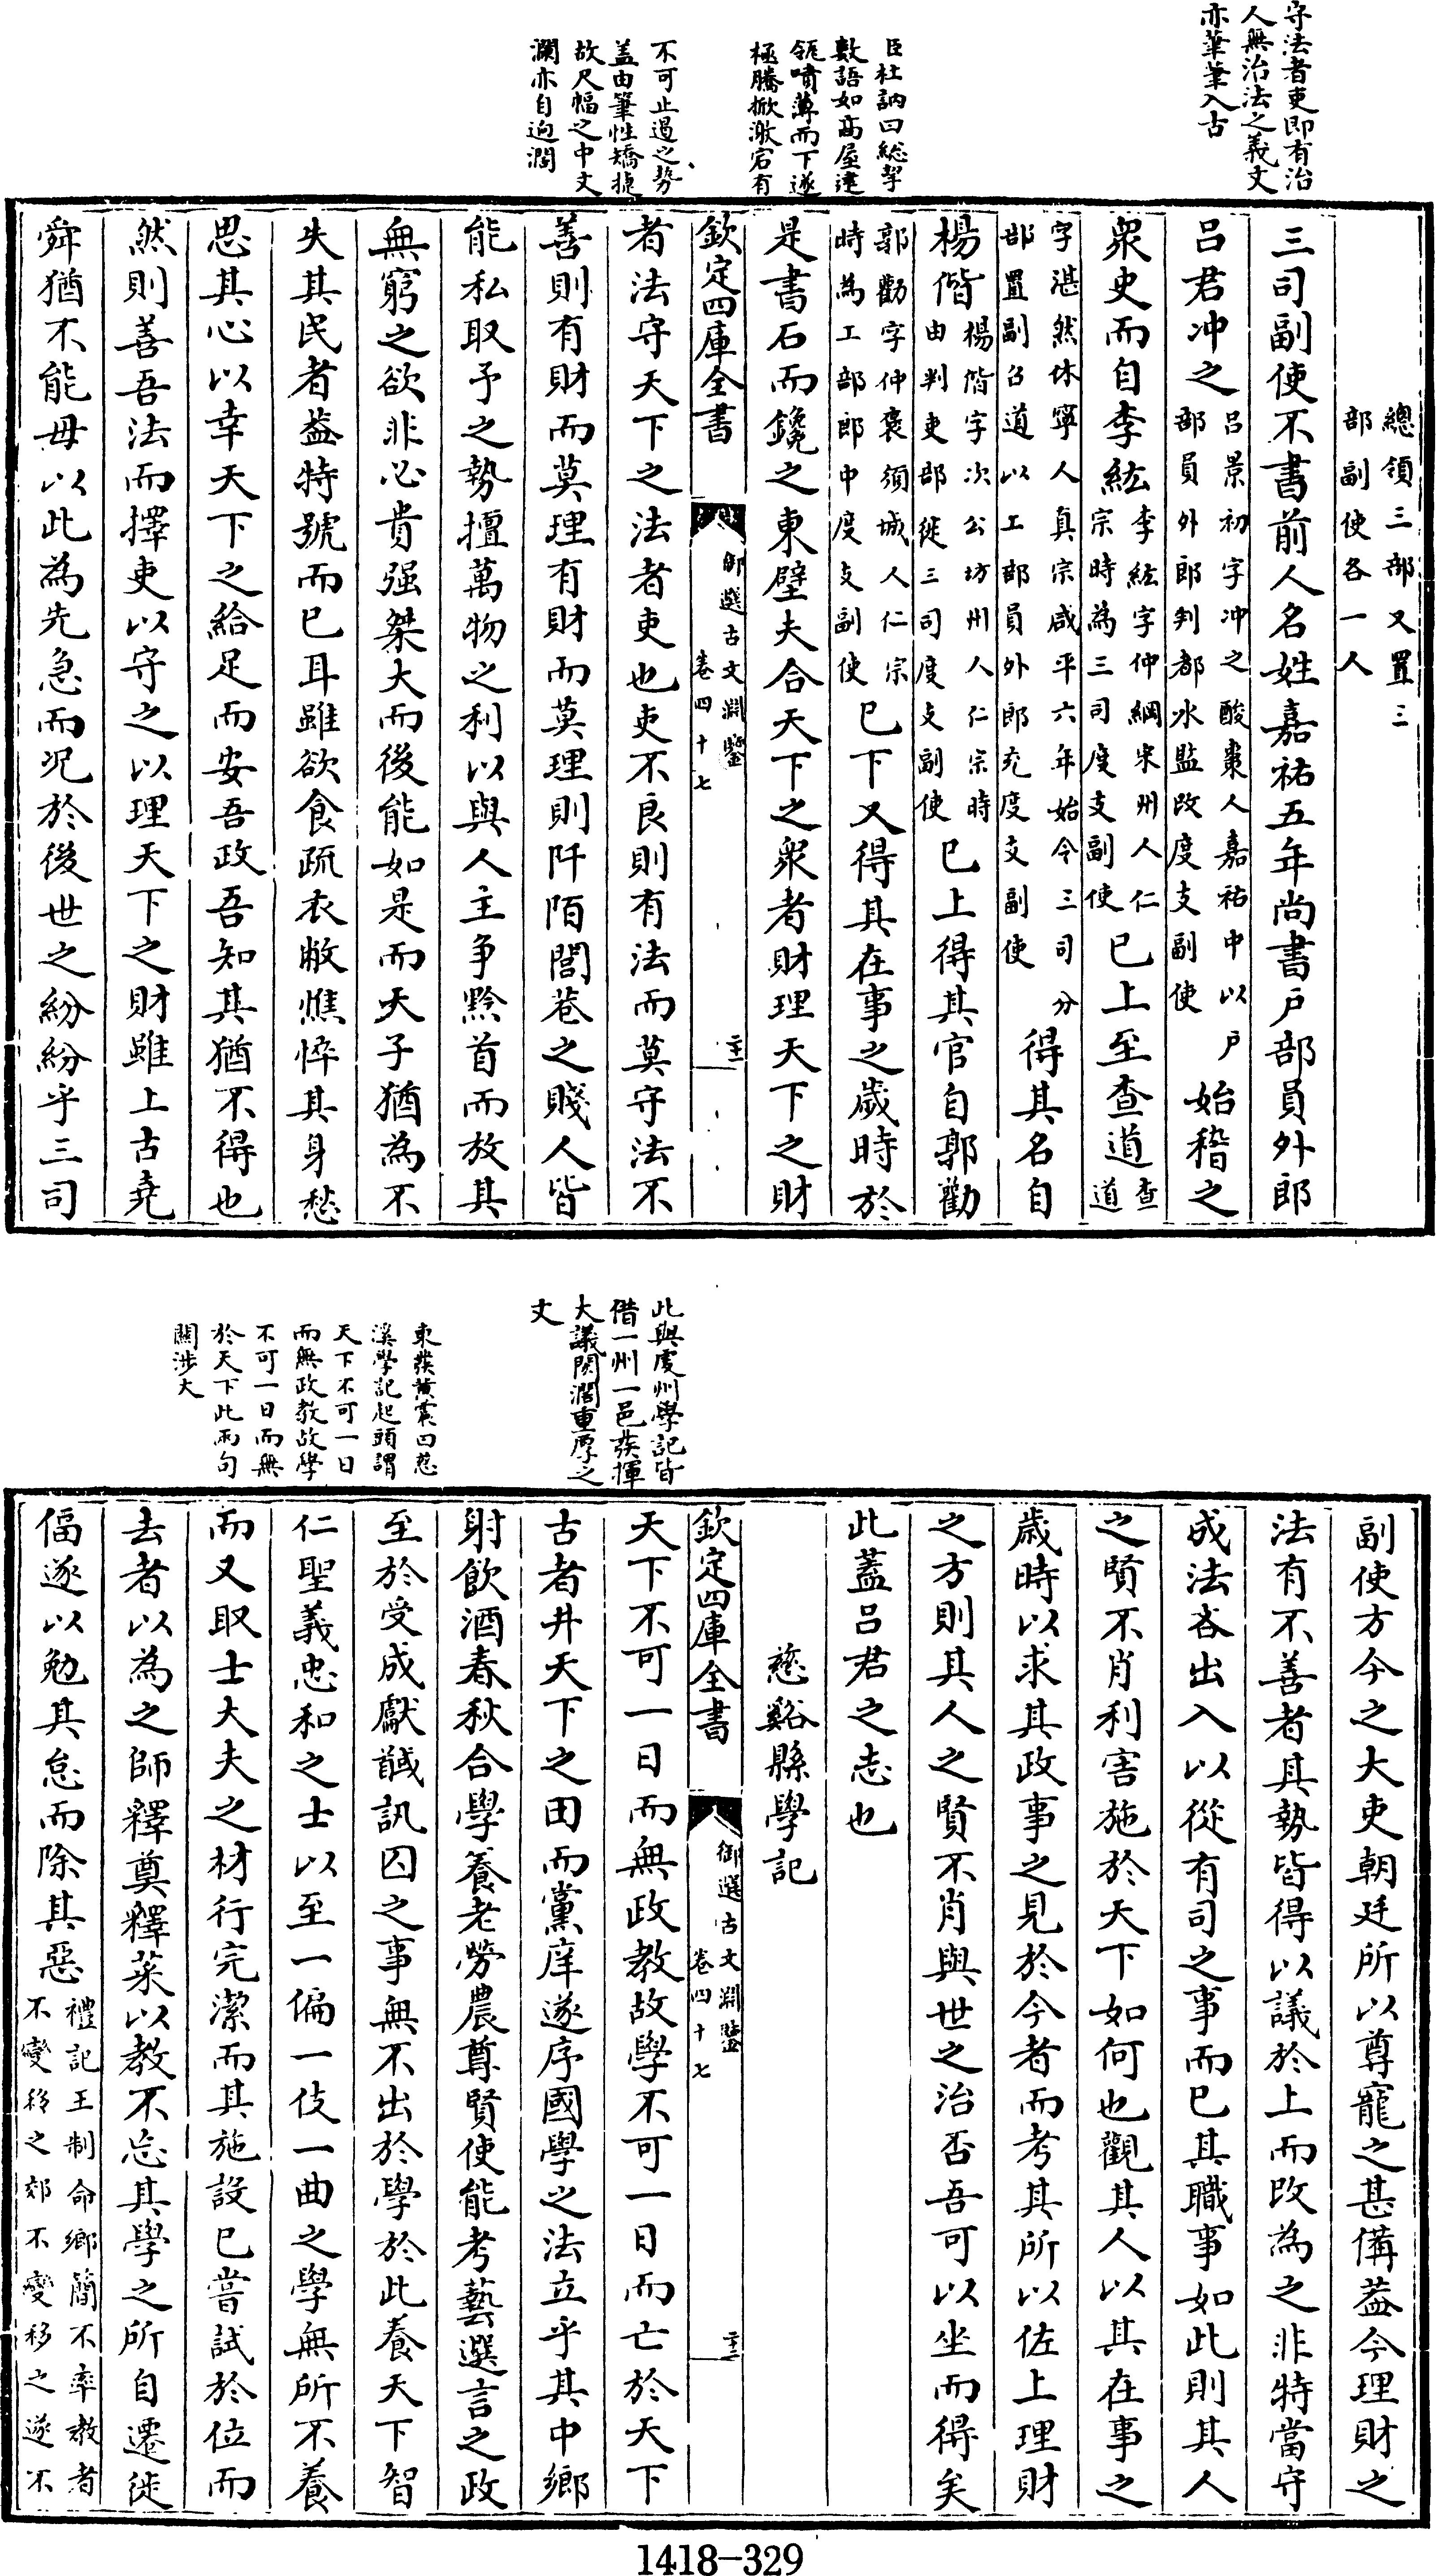 守法者吏即有治
人無治法之義文
亦葦葦入古
臣杜訥曰總挈
數語如高屋建
瓴噴薄而下遂
極騰掀激宕有
不可止遏之勢
蓋由筆性矯捷
故尺幅之中文
瀾亦自迫濶
總領三部又置三
部副使各一人
三司副使不書前人名姓嘉祐五年尚書户部員外郎
呂君冲之呂景初字冲之酸棗人嘉祐中以户部員外郎判都水監改度支副使始稽之
衆史而自李紘李紘字仲綱宋州人仁宗時為三司度支副使已上至查道查道
字湛然休寧人真宗咸平六年始令三司分部置副召道以工部員外郎充度支副使得其名自
楊偕楊偕字次公坊州人仁宗時由判吏部從三司度支副使已上得其官自郭勸
郭勸字仲褒須城人仁宗時為工部郎中度支副使已下又得其在事之歲時於
是書石而鑱之東壁夫合天下之衆者財理天下之財
欽定四庫全書
御選古文淵鑒
卷四十七
二十一
者法守天下之法者吏也吏不良則有法而莫守法不
善則有財而莫理有財而莫理則阡陌閭巷之賤人皆
能私取予之勢擅萬物之利以與人主争黔首而放其
無窮之欲非必貴强桀大而後能如是而天子猶為不
失其民者蓋特號而已耳雖欲食疏衣敝憔悴其身愁
思其心以幸天下之給足而安吾政吾知其猶不得也
然則善吾法而擇吏以守之以理天下之財雖上古堯
舜猶不能毋以此為先急而况於後世之紛紛乎三司
此與虔州學記皆
借一州一邑發揮
大議閎濶重厚之
文
東發黄震曰慈
溪學記起頭謂
天下不可一日
而無政教故學
不可一日而無
於天下此兩句
關涉大
副使方今之大吏朝廷所以尊寵之甚備蓋今理財之
法有不善者其勢皆得以議於上而改為之非特當守
成法吝出入以從有司之事而已其職事如此則其人
之賢不肖利害施於天下如何也觀其人以其在事之
歲時以求其政事之見於今者而考其所以佐上理財
之方則其人之賢不肖與世之治否吾可以坐而得矣
此蓋呂君之志也
慈谿縣學記
欽定四庫全書
御選古文淵鑒
卷四十七
二十二
天下不可一日而無政教故學不可一日而亡於天下
古者井天下之田而黨庠遂序國學之法立乎其中鄉
射飲酒春秋合學養老勞農尊賢使能考藝選言之政
至於受成獻馘訊囚之事無不出於學於此養天下智
仁聖義忠和之士以至一偏一伎一曲之學無所不養
而又取士大夫之材行完潔而其施設已嘗試於位而
去者以為之師釋奠釋菜以教不忘其學之所自遷徙
偪遂以勉其怠而除其惡禮記王制命鄉簡不率教者不變移之郊不變移之遂不
1418-329